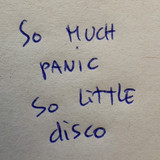 SO MUCH
PANIC
SO LiTTLE
disco